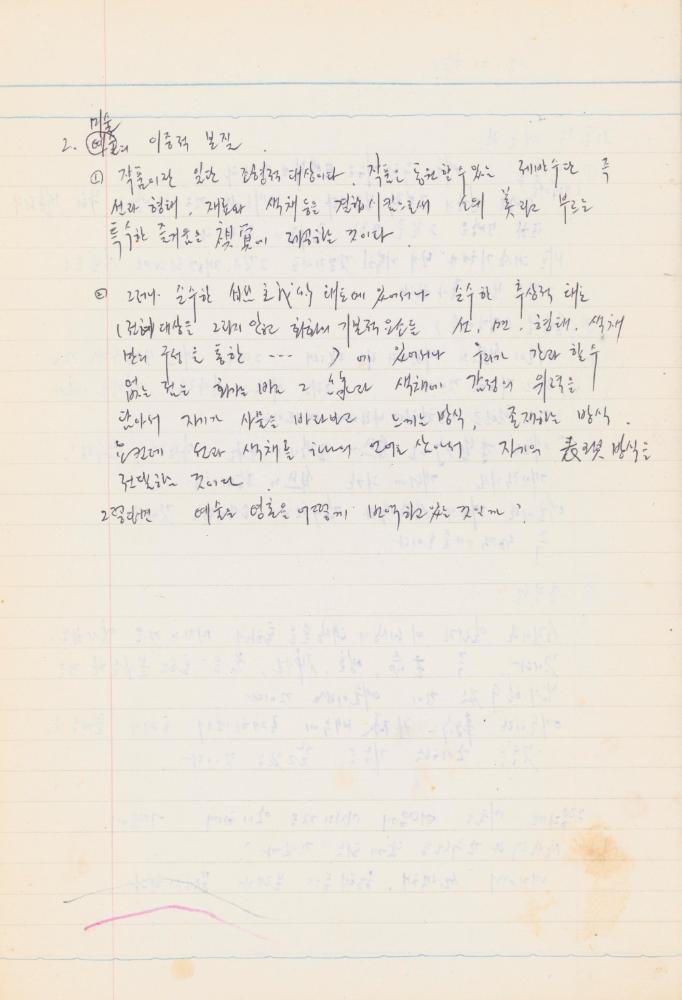 미술
2. 예술의 이중적 본질.
① 작품이란 일단 조형적 대상이다. 작품은 동원할 수 있는 제반수단 즉
선과 형태, 재료와 색채 등을 결합시킴으로써 소위 美라고 부르는
특수한 즐거움을 視覚에 제공하는 것이다.
② 그러나 순수한 태도에 있어서나 순수한 추상적 태도
(전혀 대상을 그리지 않고 회화의 기본적 요소들 선, 면, 형태, 색채
만의 구성을 통한 ---- ) 에 있어서나 우리가 간과할 수
없는 점은 화가는 바로 그 線과 색채에 감정의 위력을
담아서 자기가 사물을 바라보고 느끼는 방식, 존재하는 방식.
요컨데 선과 색채를 하나의 언어로 삼아서 자기의 表現 방식을
전달하는 것이다.
그렇다면 예술은 영혼을 어떻게 번역하고 있는 것일까?